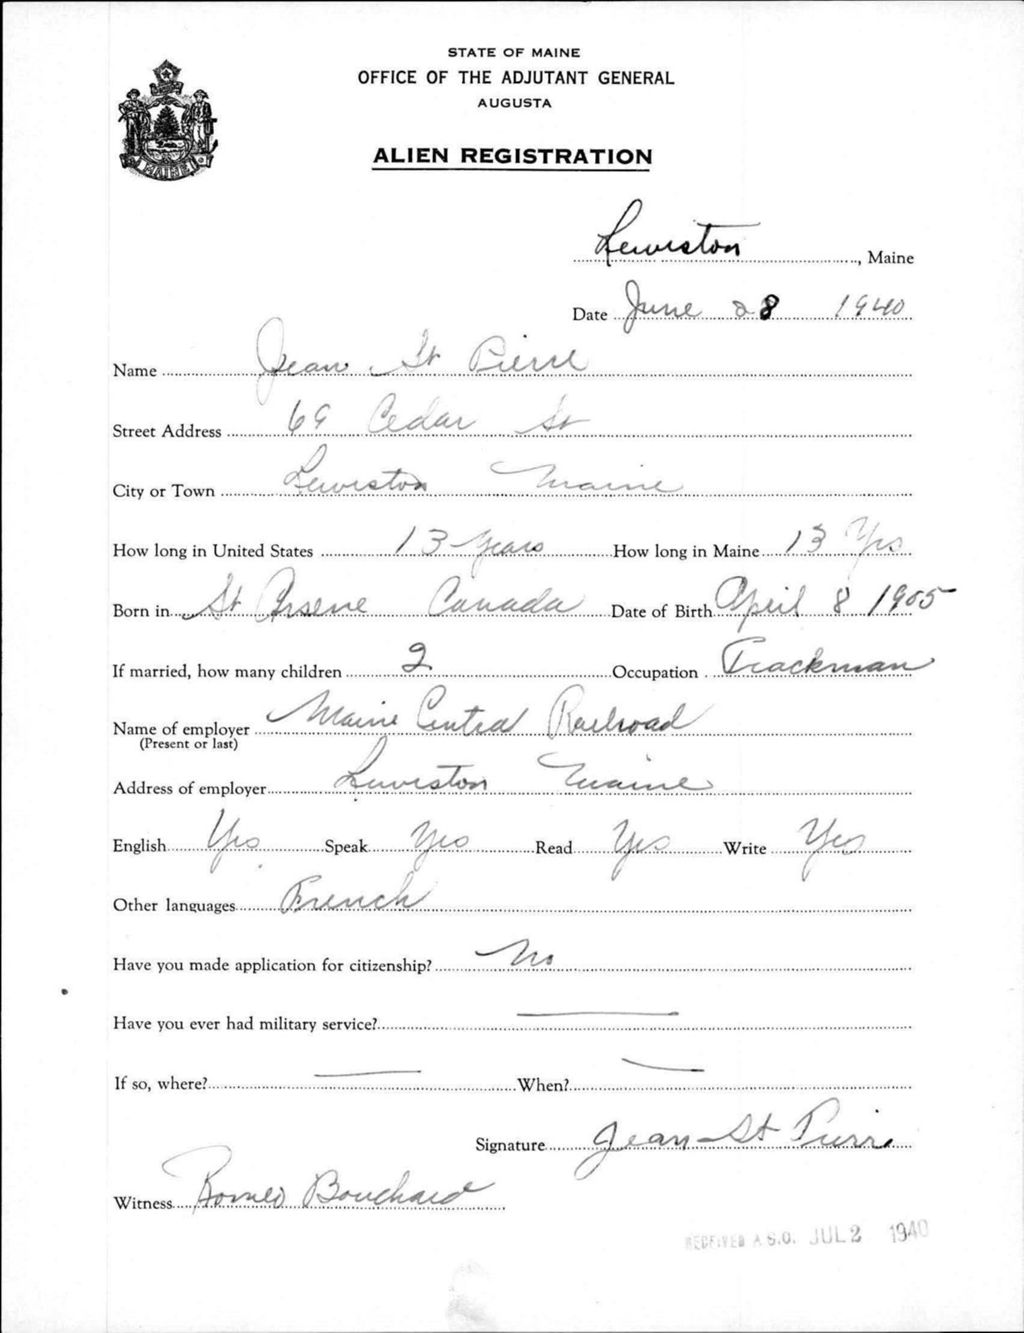 STATE OF MAINE
OFFICE OF THE ADJUTANT GENERAL
AUGUSTA
ALIEN REGISTRATION
MAINE
Lewiston, Maine
Date June 28 1940
Name Jean St Pierre
Street Address 69 Cedar St
City or Town Lewiston Maine
How long in United States 13 Years How long in Maine 13 Yrs
Born in St Arsene Canada Date of Birth April 8 1905
If married, how many children 2 Occupation Trackman
Name of employer Maine Central Railroad
(Present or last)
Address of employer Lewiston Maine
English Yes Speak Yes Read Yes Write Yes
Other languages French
Have you made application for citizenship? No
Have you ever had military service?
If so, where? When?
Signature Jean St Pierre
Witness Romeo Bouchard
RECEIVED A.G.O. JUL 2 1940